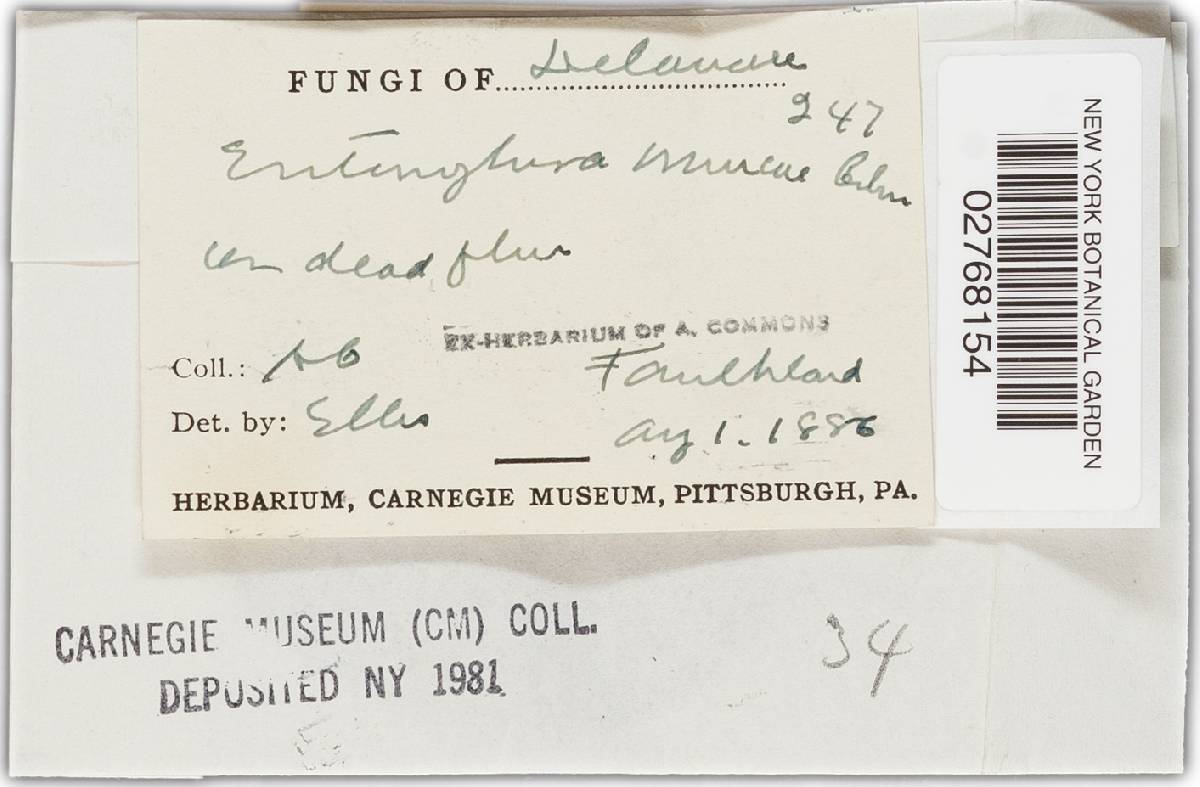 FUNGI OF Delaware
247
Entomophthora Muscae Cohn
on dead flies
EX-HERBARIUM OF A. COMMONS
Coll.: AC
Faulkland
Det. by: Ellis
Aug 1. 1886
HERBARIUM, CARNEGIE MUSEUM, PITTSBURGH, PA.
NEW YORK BOTANICAL GARDEN
02768154
CARNEGIE MUSEUM (CM) COLL.
DEPOSITED NY 1981
34